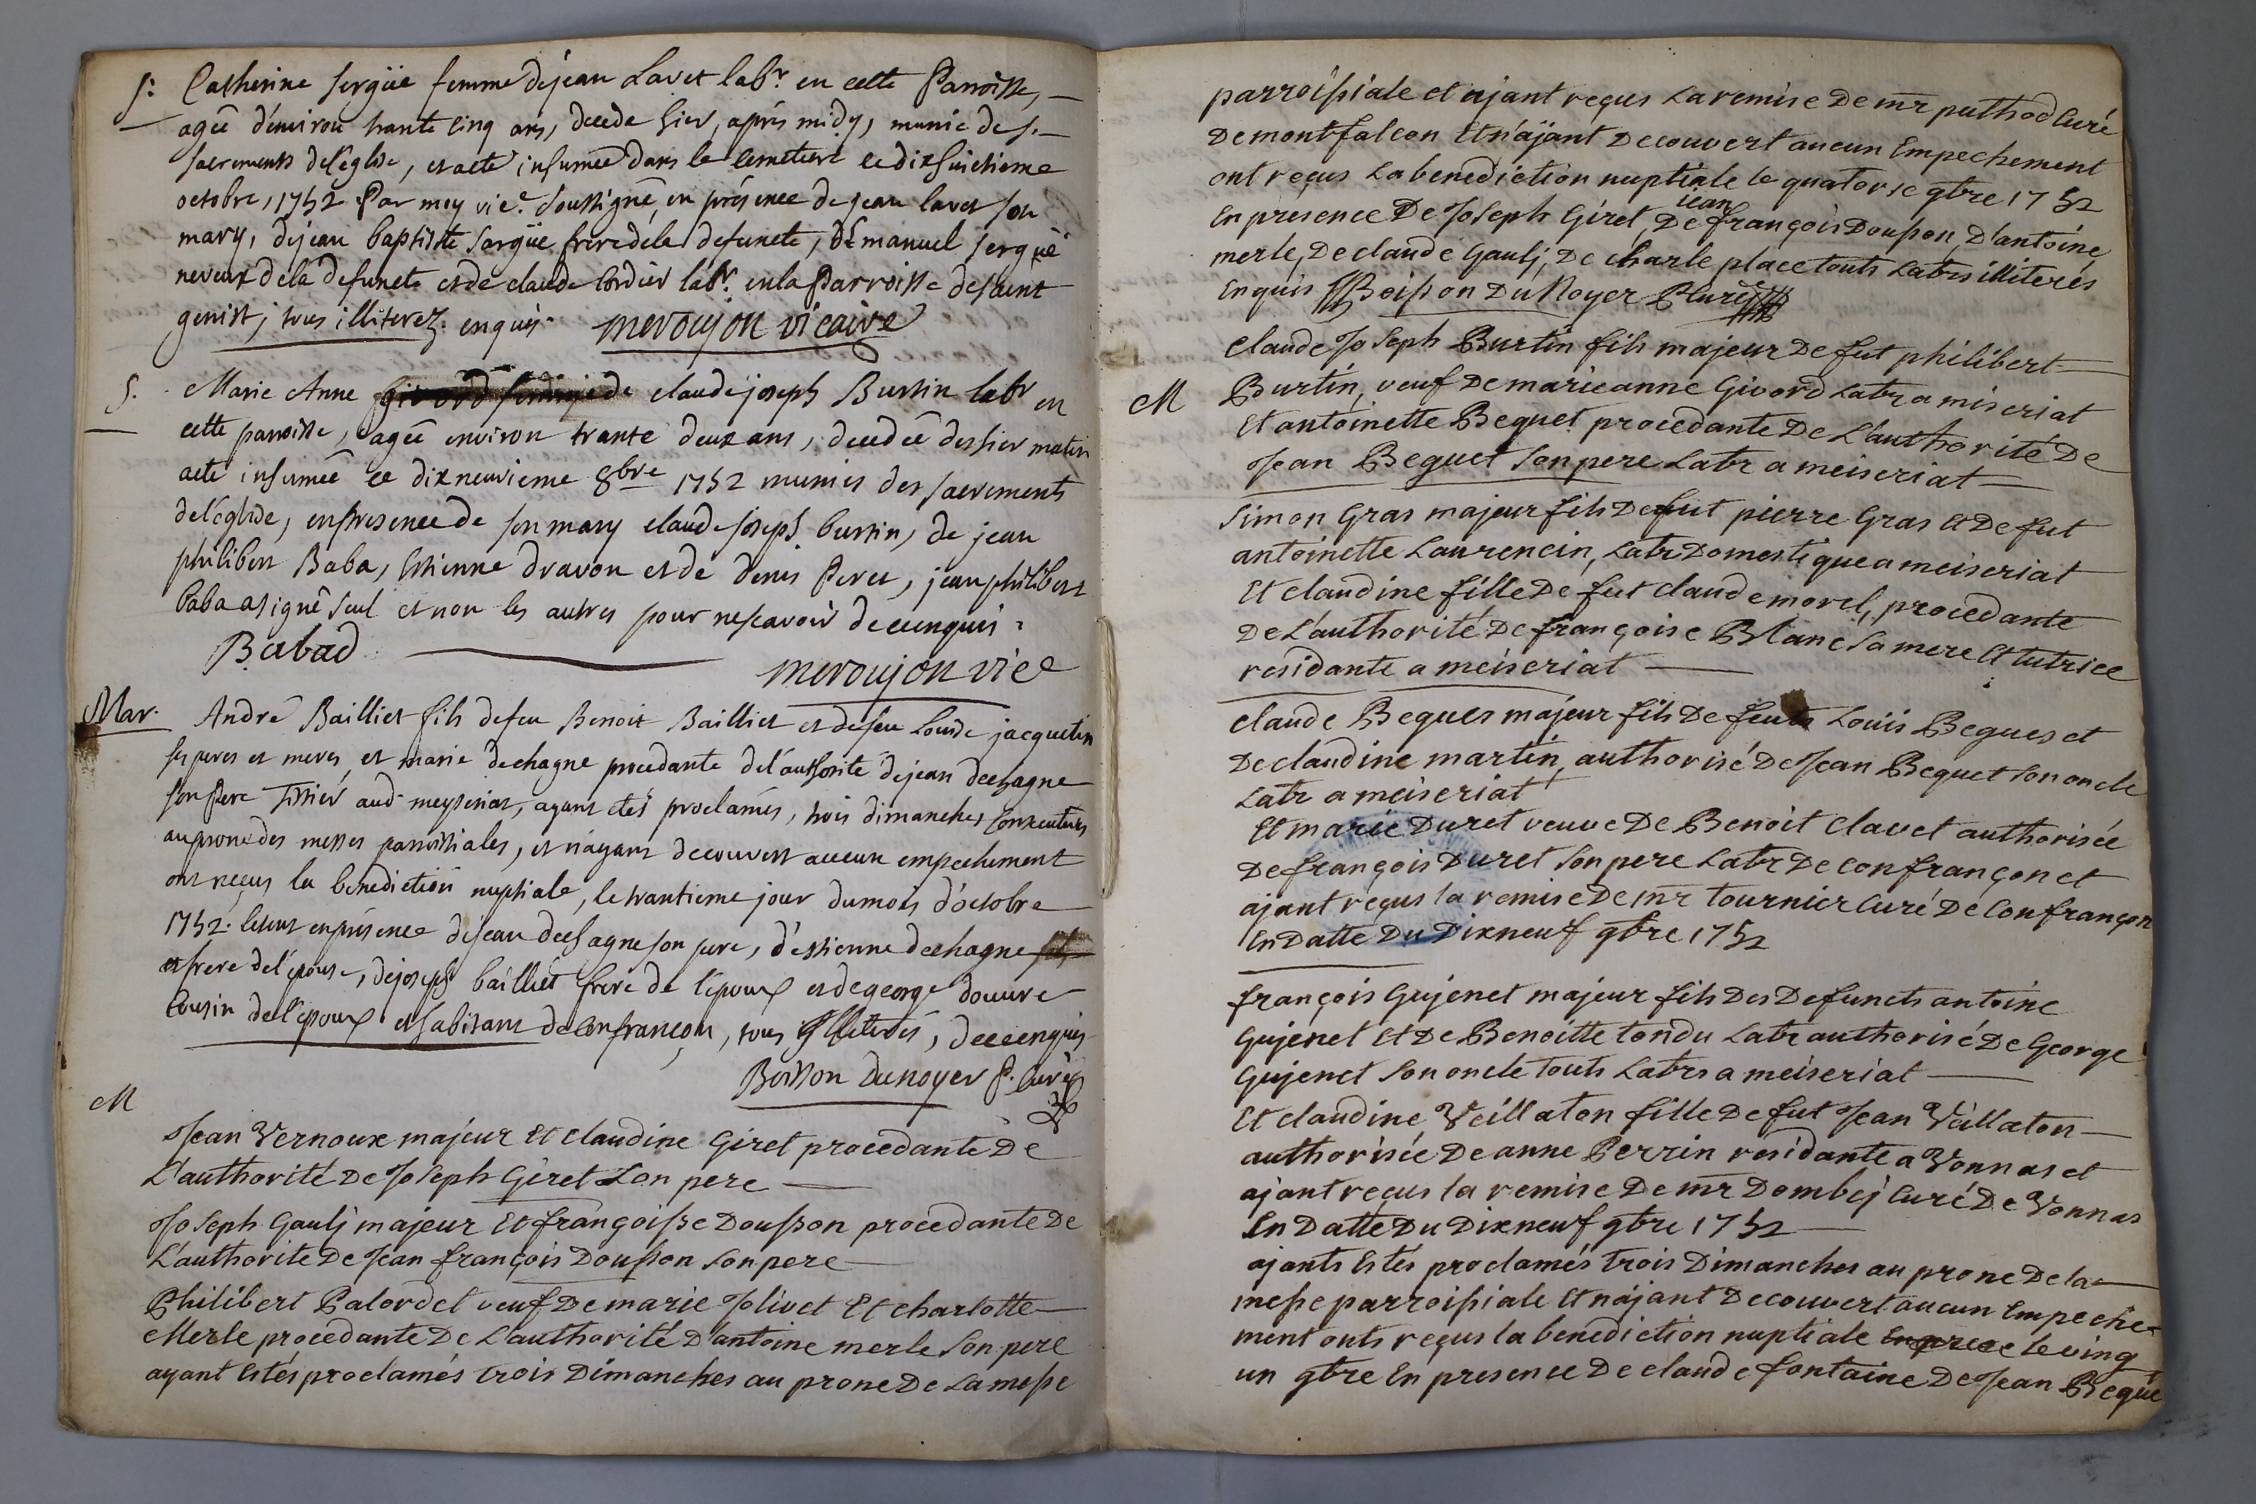 S. Catherine sergüe femme de jean Lavet lab.r en cette Parroisse,
agée d'environ trante cinq ans, decede hier, aprés midy, munie de s.
sacrements de l'églize, et a eté inhumée dans le cemetiere ce dixhuictieme
octobre, 1752 Par moy vic.e soussigné, en présence de jean lavet son
mary, de jean baptiste sergüe frere de la defuncte, d'Emanuel sergüe
neveux de la defuncte et de claude Cordier lab.r en la Parroisse de saint
genist, tous illiterez. enquis. meroujon vicaire
S. Marie Anne givord femme de claude joseph Burtin labr en
cette parroisse, agée environ trante deux ans, decedée deshier matin
a eté inhumée ce dixneuvieme 8bre 1752 munies des sacrements
de l'églize, en présence de son mary claude joseph burtin, de jean
philibert Baba, Estienne dravon et de denis Peret, jean philibert
Baba a signé seul et non les autres pour ne scavoir de ce enquis.
Babad
meroujon vice
Mar. André Bailliet fils de feu Benoit Bailliet et de feu Louise jacquetin
ses peres et meres, et marie dechagne procedante de l'authorité de jean dechagne
son Pere Tissier aud. meyseriat, ayant etés proclamés, trois dimanches consecutives
au prone des messes parroissiales, et n'ayant decouvert aucun empechement
ont reçus la benediction nuptiale, le trantieme jour du mois d'octobre
1752. le tout en présence de jean dechagne son pere, d'estienne dechagne
frere de l'épouse, de joseph bailliet frere de l'époux et de george douvre
Cousin de l'époux et habitant de confrançon, tous illiterés, de ce enquis
Boisson Dunoyer P. curé
M
Jean Vernoux majeur Et claudine Giret procedante De
L'authorité De Joseph Giret son pere
Joseph Gaulj majeur Et françoisse Dousson procedante De
L'authorite De Jean françois Dousson son pere
Philibert Palordet veuf De marie Jolivet Et charlotte
Merle procedante De L'authorité D'antoine merle son pere
ayant Estés proclamés trois Dimanches au prone De La messe
parroissiale et ajant reçus La remise De mr puthod Curé
De montfalcon Et n'ajant Decouvert aucun Empechement
ont reçus La benediction nuptiale le quatorse 9bre 1752
En presence De Joseph Giret, De jean françois Dousson, D'antoine
merle, De claude Gaulj, De charle place touts Labrs illiterés
Enquis Boisson Du Noyer P Curé
M
Claude Joseph Burtin fils majeur De fut philibert
Burtin, veuf De marie anne Givord Labr a miseriat
Et antoinette Beguet procedante De L'authorité De
Jean Beguet son pere Labr a meiseriat
Simon Gras majeur fils De fut pierre Gras et De fut
antoinette Laurencin, Labr Domestique a meiseriat
Et claudine fille De fut claude morel, procedante
De L'authorité De françoise Blanc sa mere Et tutrice
residante a meiseriat
Claude Begues majeur fils De feuts Louïs Begues et
De claudine martin, authorisé De Jean Beguet son oncle
Labr a meiseriat
Et marie Duret veuve De Benoit Clavet authorisée
De françois Duret son pere Labr De confrançon et
ajant reçus la remise De mr tournier Curé De Confrançon
En Datte Du Dixneuf 9bre 1752
françois Gujenet majeur fils Des Defuncts antoine
Gujenet Et De Benoitte tondu Labr authorisé De George
Gujenet son oncle touts Labrs a meiseriat
Et claudine Veillaton fille De fut Jean Veillaton
authorisée De anne Perrin residante a Vonnas et
ajant reçus la remise De mr Dombej Curé De Vonnas
En Datte Du Dixneuf 9bre 1752
ajants Estés proclamés trois Dimanches au prone De la
messe parroissiale Et n'ajant Decouvert aucun Empeche-
ment onts reçus la benediction nuptiale Le ving
un 9bre En presence De claude fontaine De Jean Begue